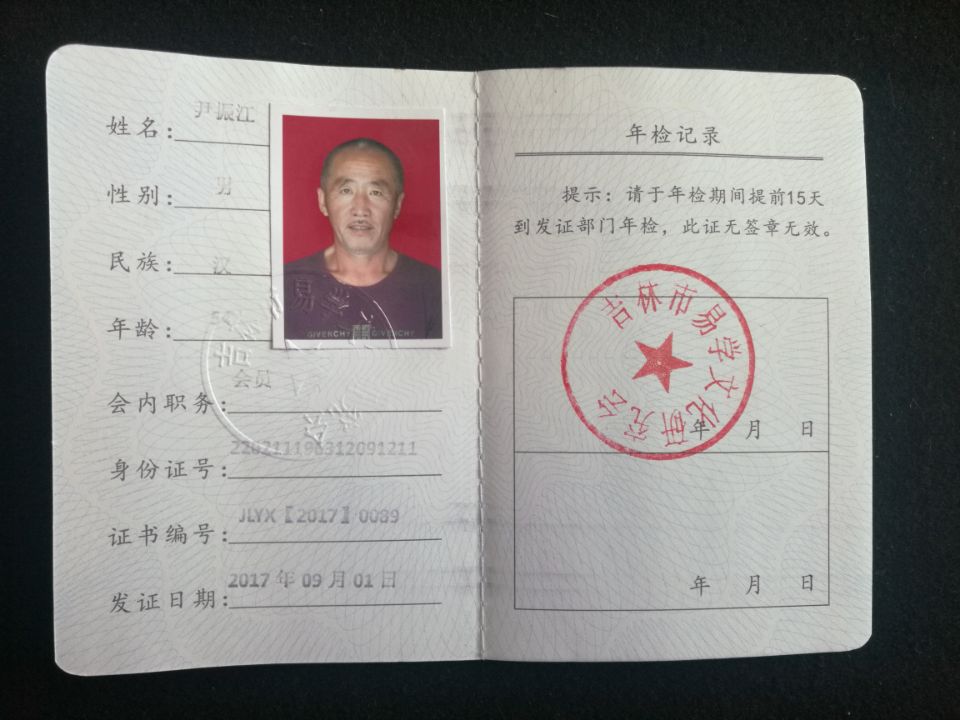 姓名：尹振江
性别：男
民族：汉
年龄：
会内职务：会员
身份证号：220211196312091211
证书编号：JLYX【2017】0089
发证日期：2017 年 09 月 01 日
GIVENCHY GIVENCHY
年检记录
提示：请于年检期间提前15天
到发证部门年检，此证无签章无效。
吉林市易学文化研究会
年 月 日
年 月 日